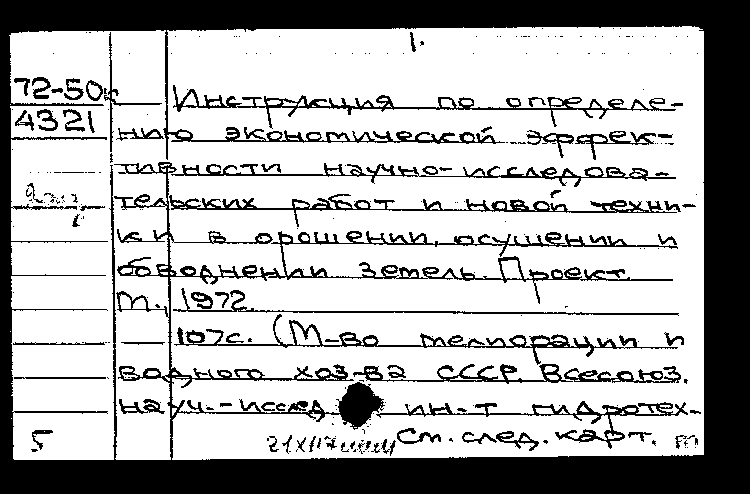 1.
72-50к
4321
Инструкция по определе-
нию экономической эффек-
тивности научно-исследова-
тельских работ и новой техни-
ки в орошении, осушении и
обводнении земель. Проект.
М., 1972.
107с. (М-во мелиорации и
водного хоз-ва СССР. Всесоюз.
науч.-исслед ин-т гидротех-
См. след. карт. m
5